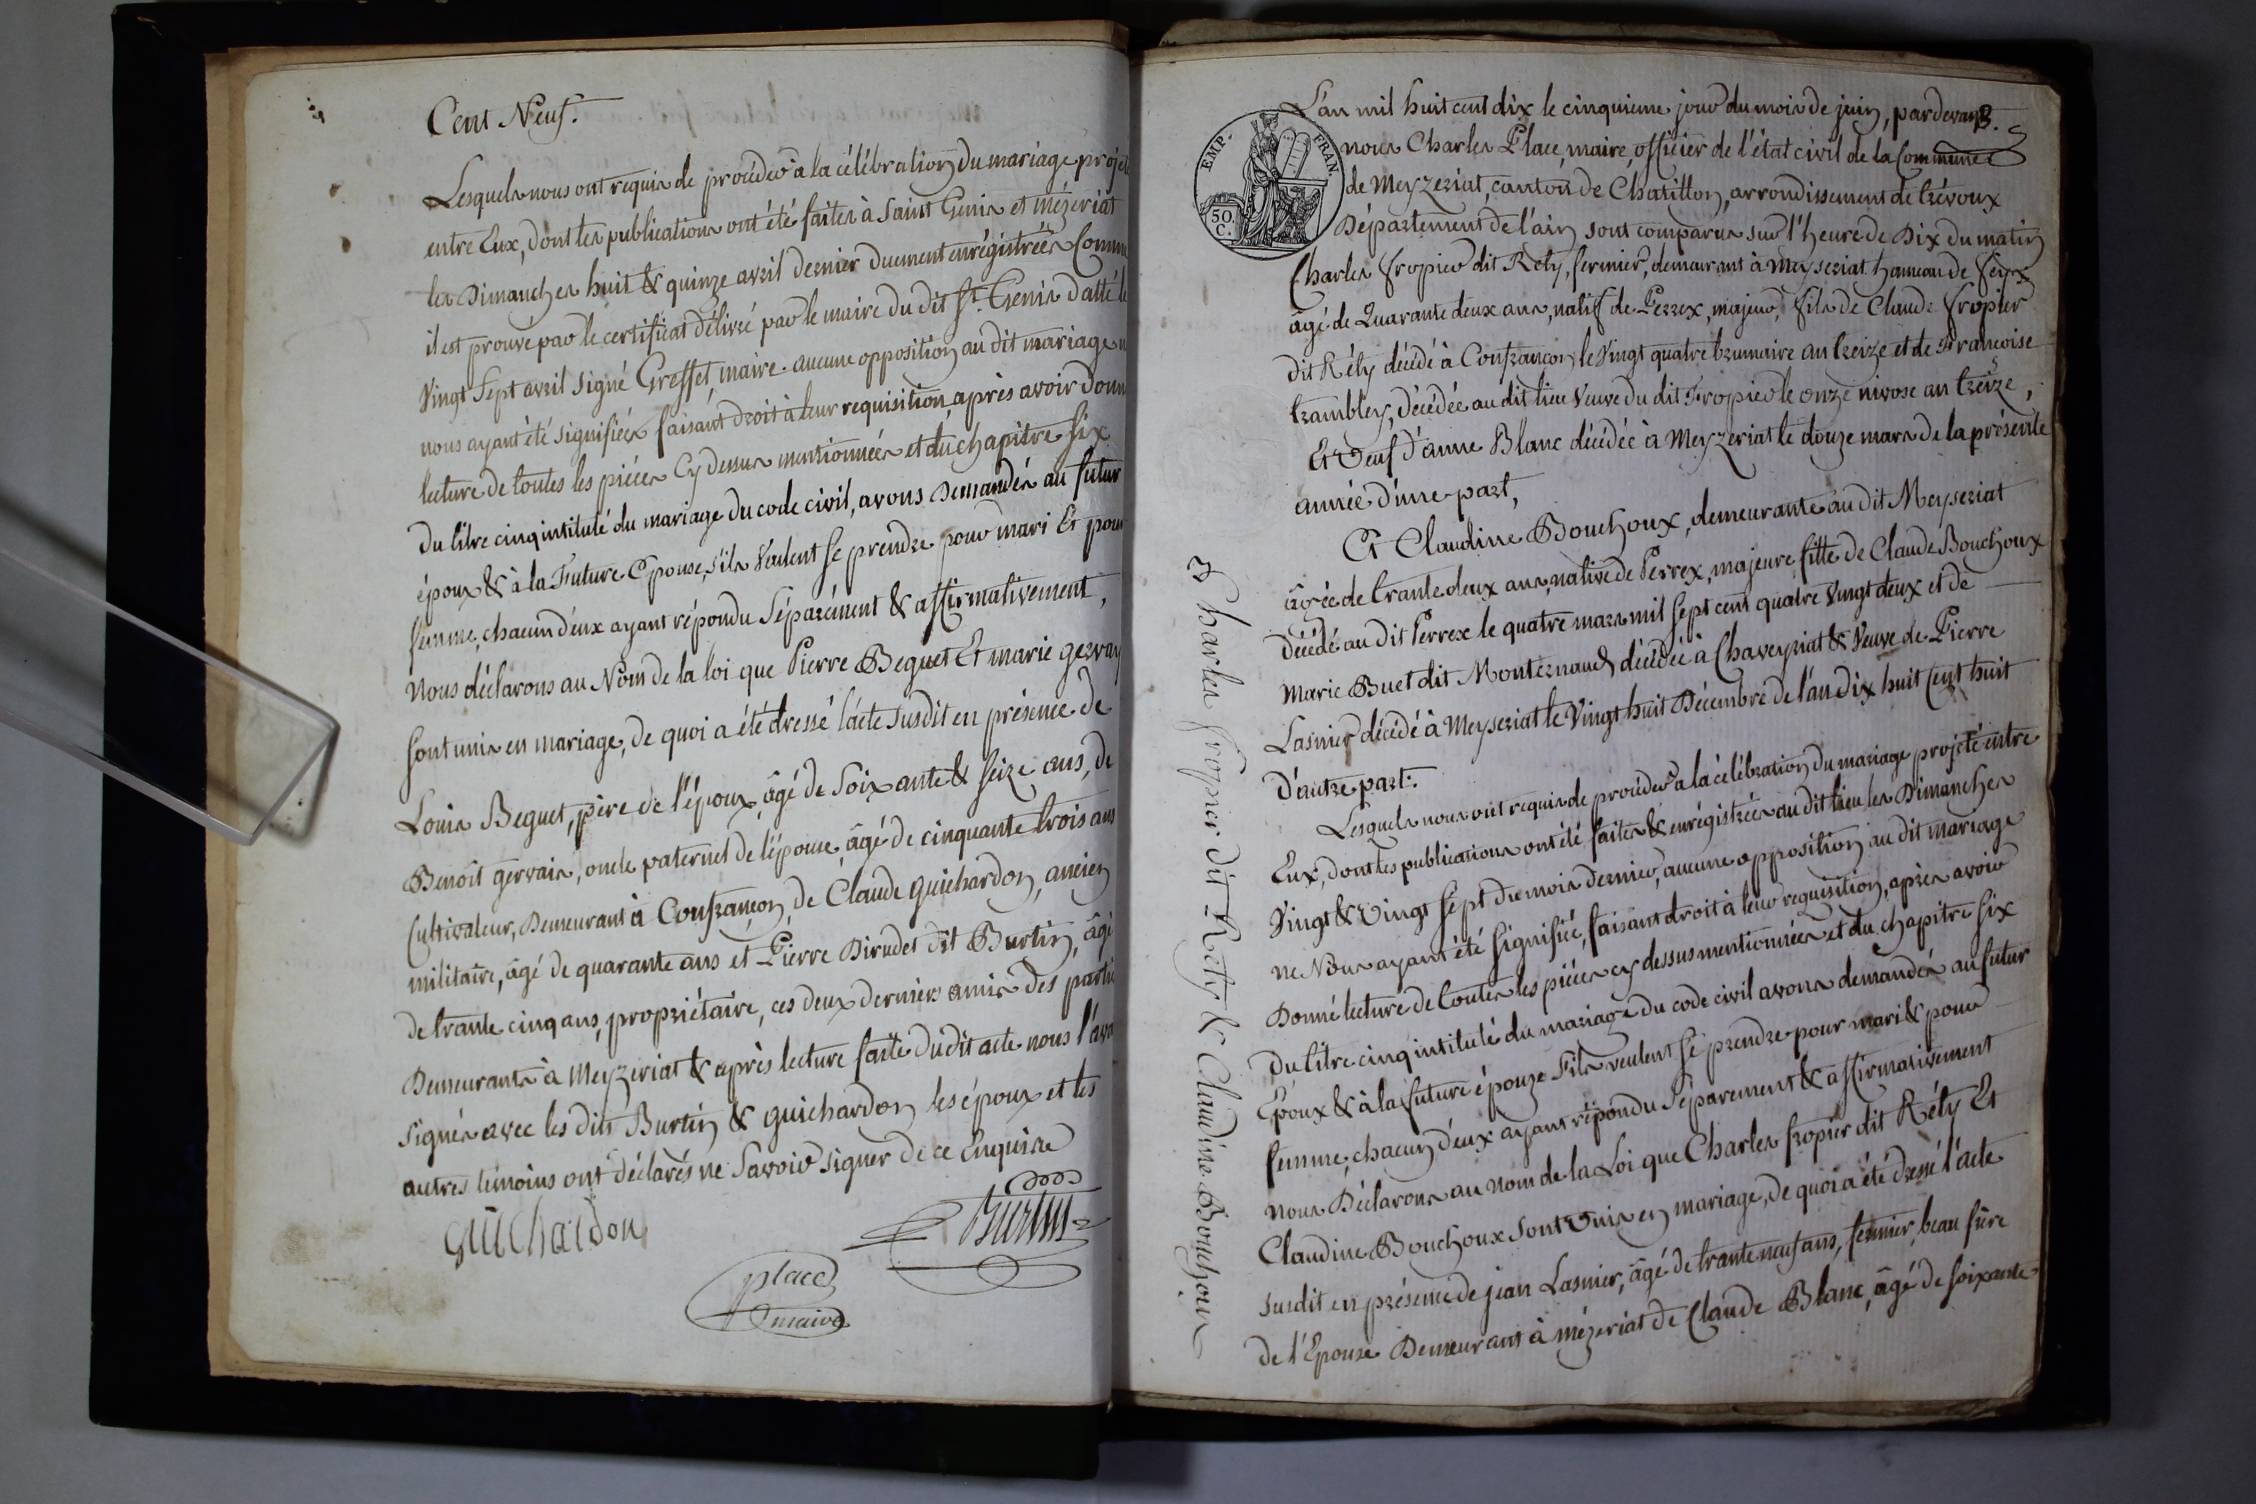 Cent Neuf.
Lesquels nous ont requis de procéder à la célébration du mariage projeté
entre Eux, dont les publications ont été faites à Saint Genis et mézeriat
les Dimanches huit & quinze avril dernier duement enrégistrées Comme
il est prouvé par le certificat délivré par le maire du dit St. Genis datté le
Vingt Sept avril signé Greffet, maire. aucune opposition au dit mariage ne
nous ayant été signifiée faisant droit à leur requisition, après avoir donné
lecture de toutes les piéces Cy dessus mentionnées et du chapitre Six
du titre cinq intitulé du mariage du code civil, avons demandés au futur
époux & à la Future Epouse, s'ils Veulent se prendre pour mari Et pour
femme, chacun d'eux ayant répondu Séparément & affirmativement,
nous déclarons au Nom de la loi que Pierre Beguet Et marie gervais
sont unis en mariage, de quoi a été dressé l'acte susdit en présence de
Louis Beguet, père de l'époux, âgé de Soixante & seize ans, de
Benoit gervais, oncle paternel de l'épouse, âgé de cinquante trois ans
Cultivateur, Demeurant à Confrançon, de Claude guichardon, ancien
militaire, âgé de quarante ans et Pierre Dirudet dit Burtin, âgé
de trante cinq ans, propriétaire, ces deux derniers amis des parties
Demeurants à Meyzeriat & après lecture faite dudit acte nous l'avons
signés avec les dits Burtin & guichardon les époux et les
autres témoins ont déclarés ne Savoir signer de ce Enquis
guichardon
Burtin
place
maire
EMP. FRAN.
50. C.
L'an mil huit cent dix le cinquieme jour du mois de juin, pardevant
3.
nous Charles Place, maire, officier de l'état civil de la Commune
de Meyzeriat, canton de Chatillon, arrondissement de trévoux
Département de l'ain sont comparus sur l'heure de Dix du matin
Charles fropier dit Réty, fermier, demeurant à Meyseriat hameau de
âgé de Quarante deux ans, natif de Perrex, majeur, fils de Claude fropier
dit Réty décédé à Confrançon le Vingt quatre brumaire an treize et de Francoise
trambley, décédée au dit lieu Veuve du dit Fropier le onze nivose an treize,
Et Veuf d'anne Blanc décédée à Meyzeriat le douze mars de la présente
année d'une part,
Et Claudine Bouchoux, demeurante au dit Meyseriat
âgée de trante deux ans, native de Perrex, majeure, fille de Claude Bouchoux
décédé au dit Perrex le quatre mars mil sept cent quatre Vingt deux et de
Marie Buet dit Monternaud, décédée à Chaveyriat & Veuve de Pierre
Lasnier décédé à Meyseriat le Vingt huit Décembre de l'an dix huit Cent huit
d'autre part.
Lesquels nous ont requis de procéder à la célébration du mariage projeté entre
Eux, dont les publications ont été faites & enrégistrées au dit lieu les Dimanches
Vingt & Vingt Sept du mois dernier, aucune opposition au dit mariage
ne Nous ayant été signifiée, faisant droit à leur requisition, après avoir
Donné lecture de toutes les piéces cy dessus mentionnées et du chapitre Six
du titre cinq intitulé du mariage du code civil avons demandés au futur
Epoux & à la future épouze s'ils veulent se prendre pour mari & pour
femme, chacun d'eux ayant répondu Séparement & affirmativement
nous Déclarons au nom de la Loi que Charles fropier dit Réty Et
Claudine Bouchoux Sont Unis en mariage, de quoi a été dressé l'acte
susdit en présence de jean Lasnier, âgé de trante neuf ans, fermier, beau frère
de l'Epouse Demeurant à mézeriat de Claude Blanc, âgé de soixante
Charles fropier dit Réty & Claudine Bouchoux